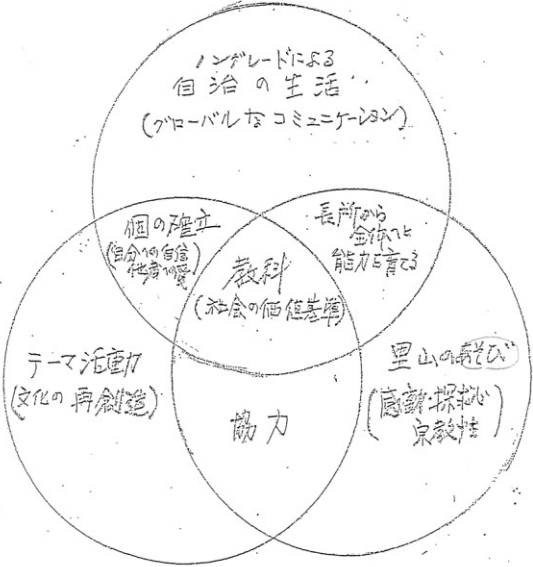 ノングレードによる
自治の生活
(グローバルなコミュニケーション)
個の確立
(自分への自信
他者への愛)
長所から
全体へと
能力を育てる
教科
(社会の価値基準)
テーマ活動
(文化の再創造)
里山のあそび
(感動・探求心
宗教性)
協力